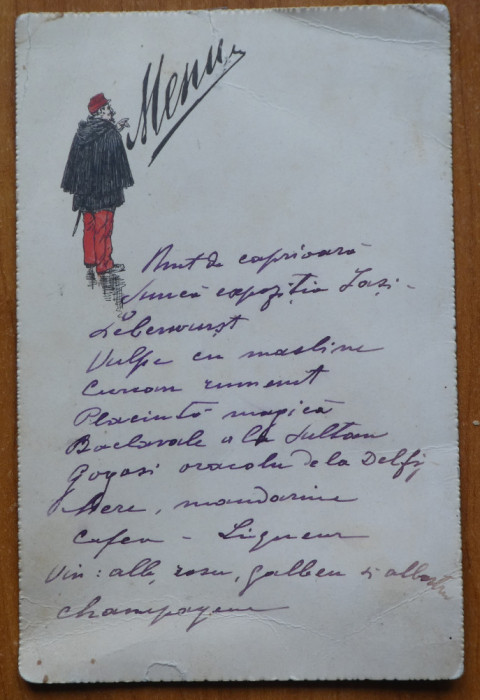 Menu
But de caprioară
Suncă expoziția Iași -
Leberwurșt
Vulpe cu masline
Curcan rumenit
Placintă magică
Baclavale a la Sultan
Gogași oracolu de la Delfi
Mere, mandarine
Cafea - Liqueur
Vin: alb, rosu, galben si albastru
champagne